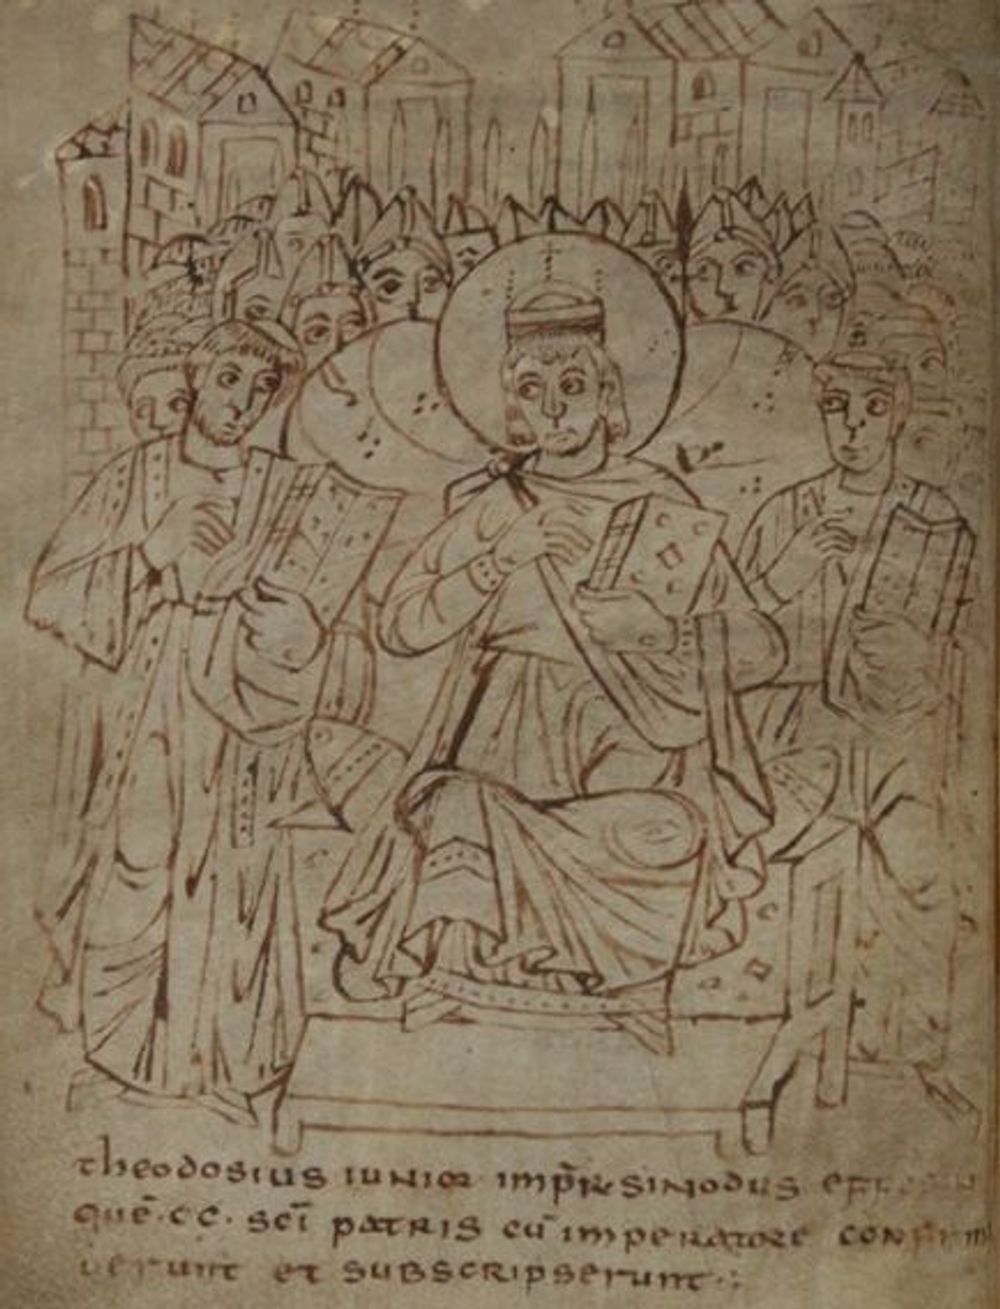 theodosius iunior imp̄r sinodus
quē · cc · scī patris cū imperatore
uerunt et subscripserunt ·: